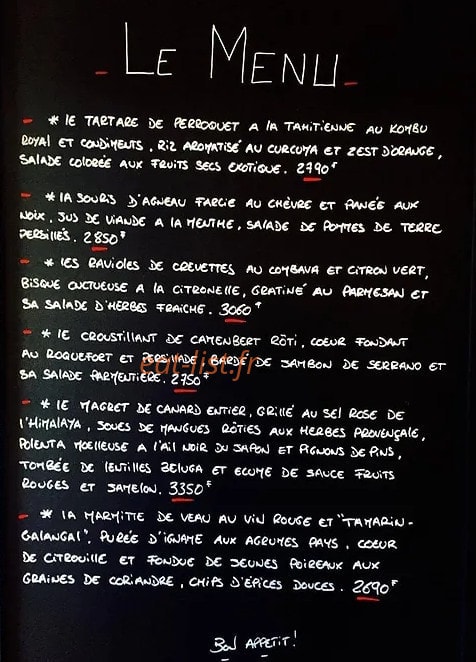 LE MENU
* LE TARTARE DE PERROQUET A LA TAHITIENNE AU KOMBU
ROYAL ET CONDIMENTS, RIZ AROMATISÉ AU CURCUMA ET ZEST D'ORANGE,
SALADE COLORÉE AUX FRUITS SECS EXOTIQUE. 2790F
* LA SOURIS D'AGNEAU FARCIE AU CHÈVRE ET PANÉE AUX
NOIX, JUS DE VIANDE A LA MENTHE, SALADE DE POMMES DE TERRE
PERSILLÉS. 2850F
* LES RAVIOLES DE CREVETTES AU COMBAVA ET CITRON VERT,
BISQUE ONCTUEUSE A LA CITRONELLE, GRATINÉ AU PARMESAN ET
SA SALADE D'HERBES FRAICHE. 3060F
* LE CROUSTILLANT DE CAMENBERT RÔTI, COEUR FONDANT
AU ROQUEFORT ET PERSILLADE BARDÉ DE JAMBON DE SERRANO ET
SA SALADE PARMENTIÈRE. 2750F
eat-list.fr
* LE MAGRET DE CANARD ENTIER, GRILLÉ AU SEL ROSE DE
L'HIMALAYA, JOUES DE MANGUES RÔTIES AUX HERBES PROVENÇALE,
POLENTA MOELLEUSE A L'AIL NOIR DU JAPON ET PIGNONS DE PINS,
TOMBÉE DE LENTILLES BELUGA ET ECUME DE SAUCE FRUITS
ROUGES ET SAMELON. 3350F
* LA MARMITTE DE VEAU AU VIN ROUGE ET "TAMARIN-
GALANGAL". PURÉE D'IGNAME AUX AGRUMES PAYS, COEUR
DE CITROUILLE ET FONDUE DE JEUNES POIREAUX AUX
GRAINES DE CORIANDRE, CHIPS D'ÉPICES DOUCES. 2690F
BON APPETIT!